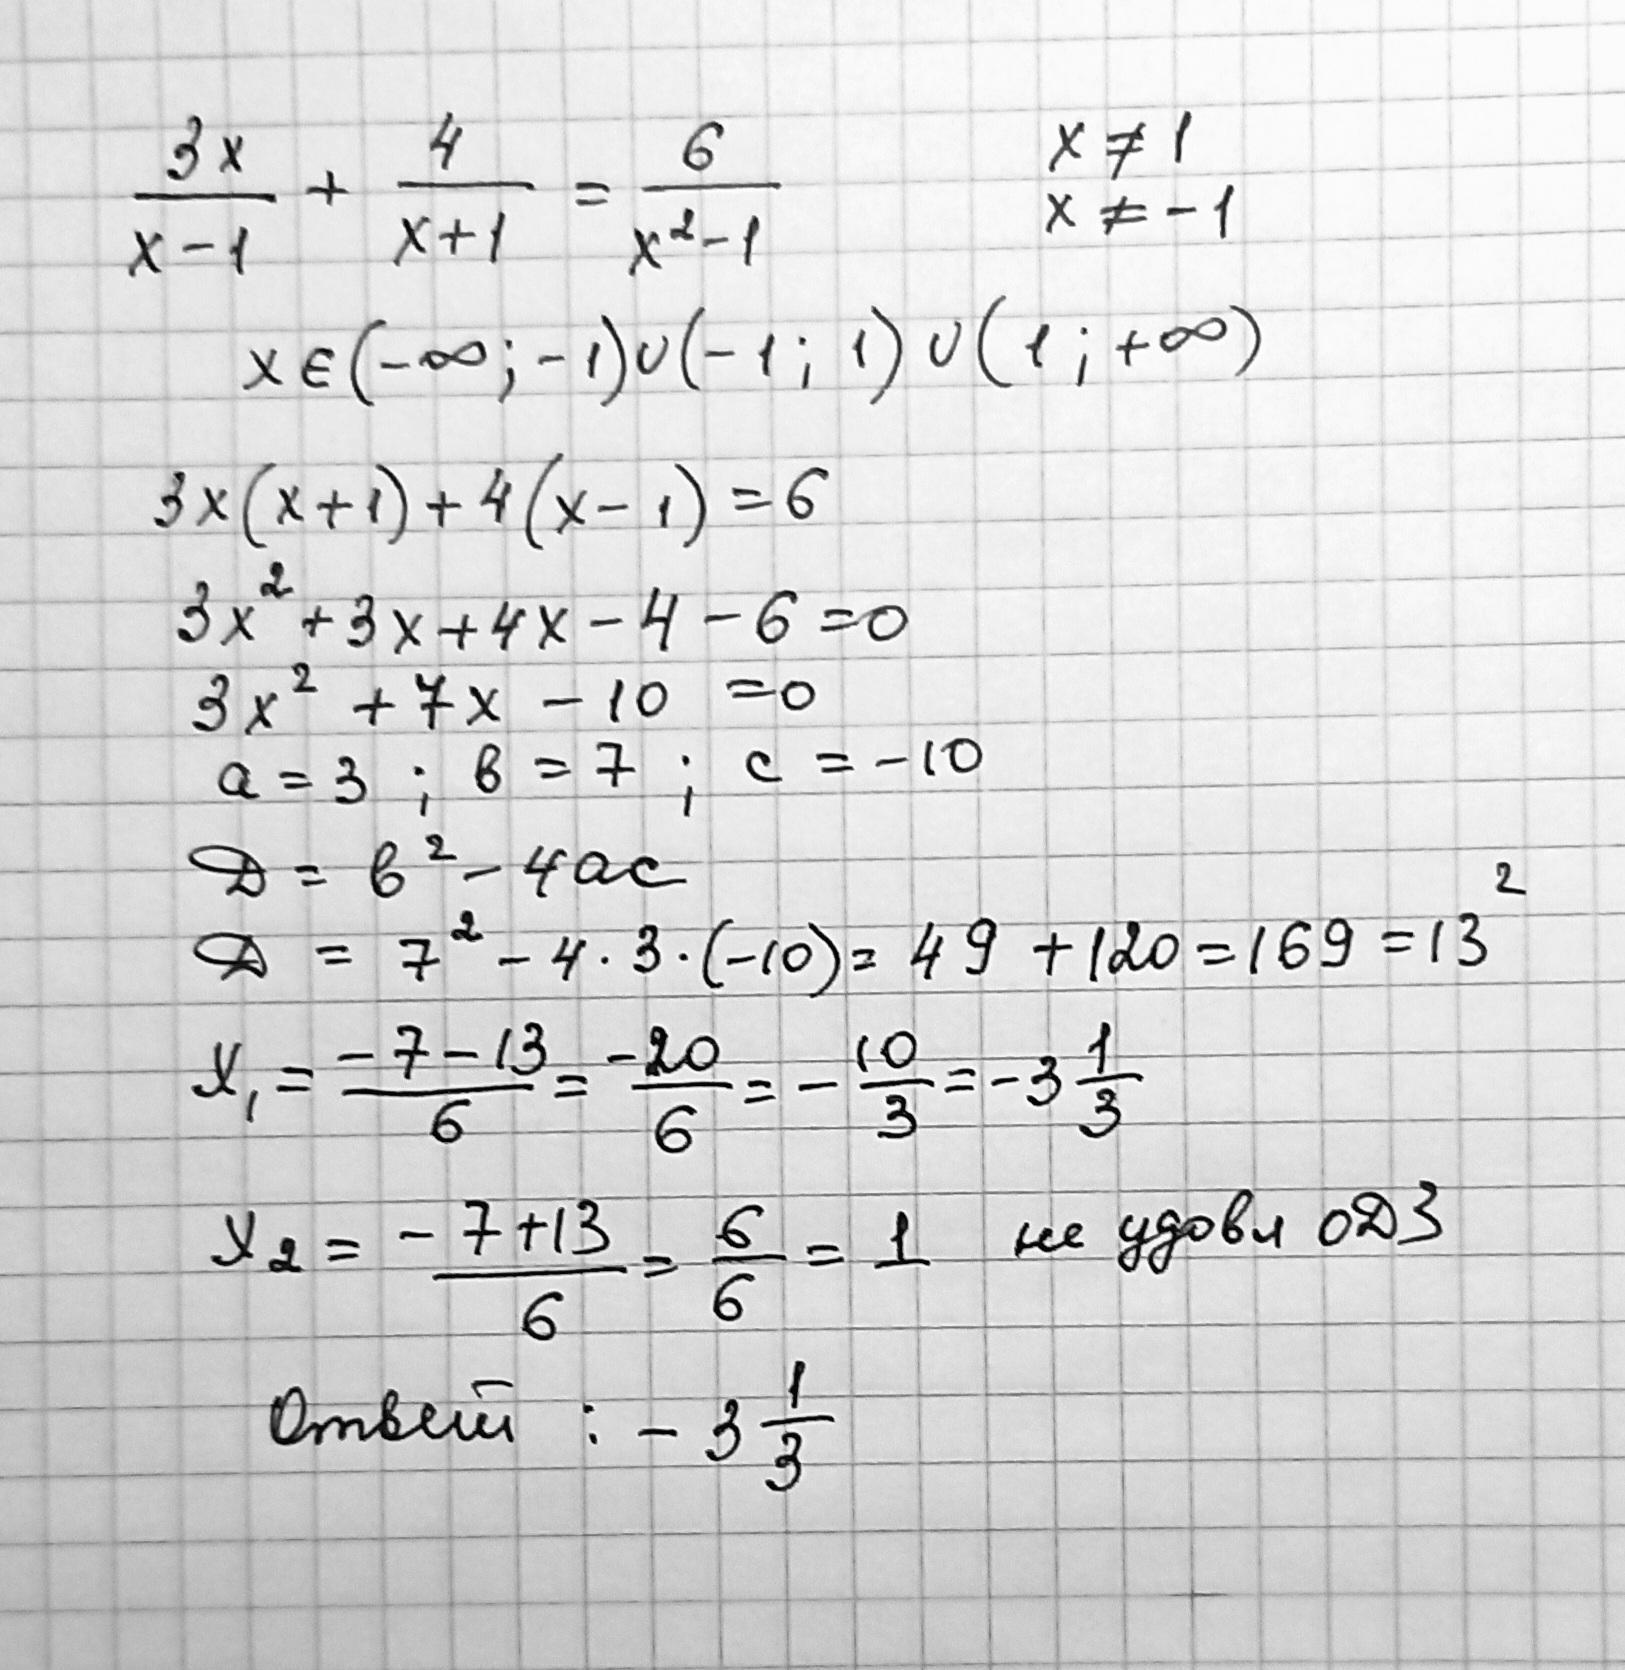 3x/(x-1) + 4/(x+1) = 6/(x²-1)    x ≠ 1
x ≠ -1
x ∈ (-∞; -1) ∪ (-1; 1) ∪ (1; +∞)
3x(x+1) + 4(x-1) = 6
3x² + 3x + 4x - 4 - 6 = 0
3x² + 7x - 10 = 0
a = 3 ; в = 7 ; c = -10
D = в² - 4ac
D = 7² - 4·3·(-10) = 49 + 120 = 169 = 13²
x₁ = (-7-13)/6 = -20/6 = -10/3 = -3 1/3
x₂ = (-7+13)/6 = 6/6 = 1 не удовл ОДЗ
Ответ : -3 1/3